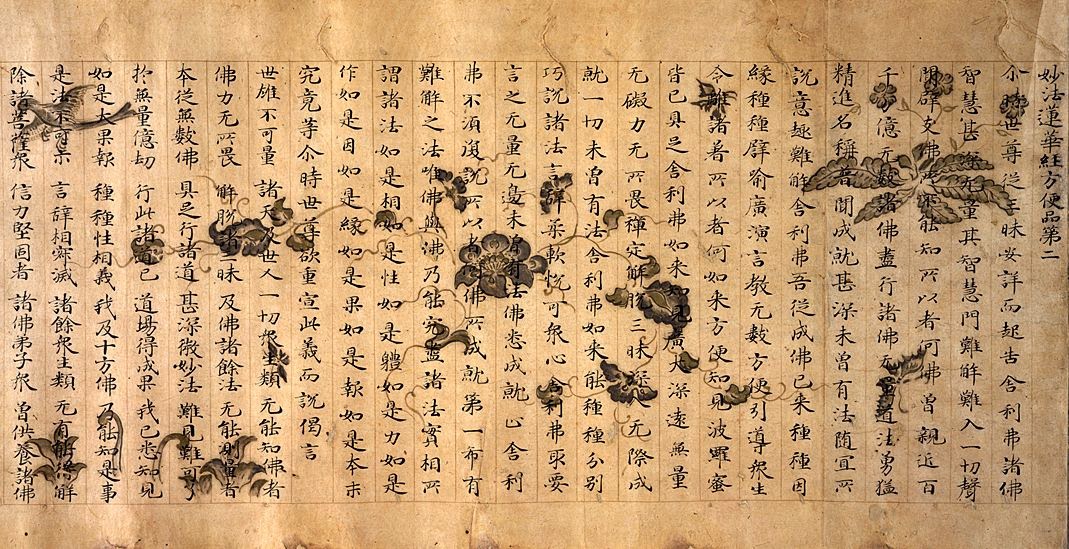 妙法蓮華経方便品第二
尒時世尊従三昧安詳而起告舎利弗諸佛
智慧甚深无量其智慧門難解難入一切聲
聞辟支佛所不能知所以者何佛曽親近百
千万億无數諸佛盡行諸佛无量道法勇猛
精進名稱普聞成就甚深未曽有法随冝所
說意趣難解舎利弗吾従成佛已来種種因
縁種種辟喻廣演言教无數方便引導衆生
令離諸著所以者何如来方便知見波羅蜜
皆已具足舎利弗如来知見廣大深遠無量
无礙力无所畏禪定解脱三昧深入无際成
就一切未曽有法舎利弗如来能種種分別
巧說諸法言辞柔軟悦可衆心舎利弗取要
言之无量无邊未曽有法佛悉成就止舎利
弗不湏復說所以者何佛所成就第一希有
難解之法唯佛與佛乃能究盡諸法實相所
謂諸法如是相如是性如是體如是力如是
作如是因如是縁如是果如是報如是本末
究竟等尒時世尊欲重宣此義而說偈言
世雄不可量 諸天及世人 一切衆生類 无能知佛者
佛力无所畏 解脱諸三昧 及佛諸餘法 无能測量者
本従無數佛 具足行諸道 甚深微妙法 難見難可了
扵無量億劫 行此諸道已 道場得成果 我已悉知見
如是大果報 種種性相義 我及十方佛 乃能知是事
是法不可示 言辞相寂滅 諸餘衆生類 无有能得解
除諸菩薩衆 信力堅固者 諸佛弟子衆 曽供養諸佛